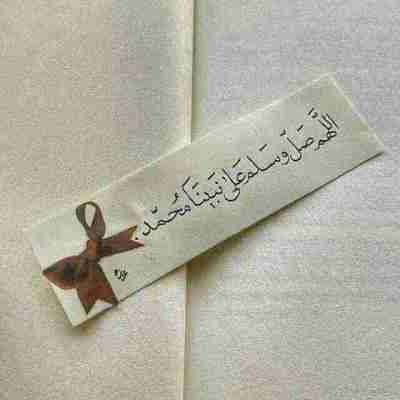 اللَّهم صَلِّ و سَلم علىٰ نبينَا مُحمَّد.